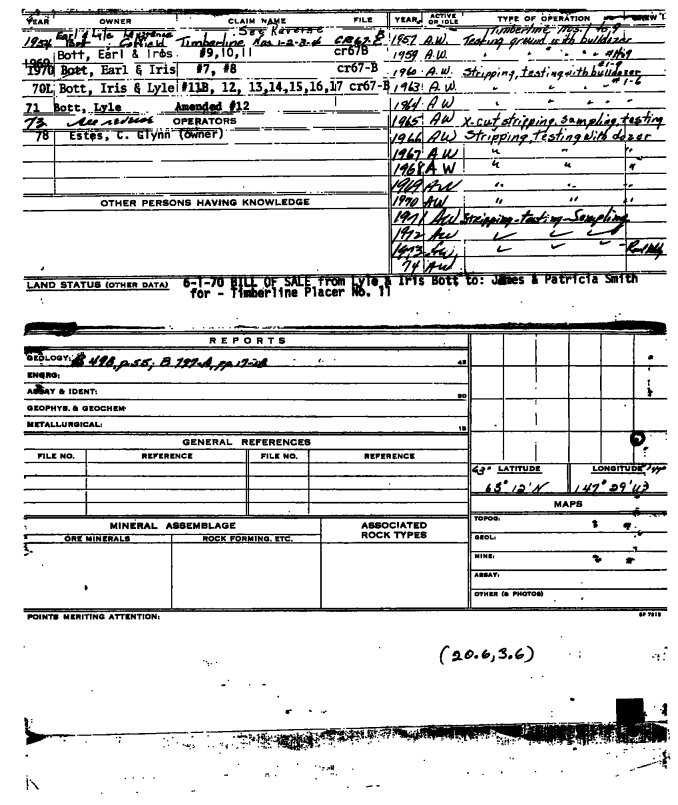 YEAR OWNER CLAIM NAME FILE YEAR ACTIVE OR IDLE TYPE OF OPERATION
See Reverse
Timberline Nos. 1 to 9
Earl & Lyle
1954 Bott Timberline Nos 1-2-3-6 CR67-B 1957 A.W. Testing ground with bulldozer
1969 Bott, Earl & Iros #9,10,11 cr67B 1959 A.W. " " " " #1-9
1970 Bott, Earl & Iris #7, #8 cr67-B 1960 A.W. Stripping, testing with bulldozer #1-6
70L Bott, Iris & Lyle #11B, 12, 13,14,15,16,17 cr67-B 1963 A.W. " " "
71 Bott, Lyle Amended #12 1964 A W
73 See reverse OPERATORS 1965 AW X-cut stripping, sampling, testing
78 Estes, C. Glynn (owner) 1966 AW Stripping, Testing with dozer
1967 A W " " "
1968 A W " " "
1969 AW " " "
OTHER PERSONS HAVING KNOWLEDGE 1970 AW " " "
1971 AW Stripping-Testing-Sampling
1972 AW ✓ ✓ ✓
1973 AW ✓ ✓ ✓
74 AW
LAND STATUS (OTHER DATA) 6-1-70 BILL OF SALE from Lyle & Iris Bott to: James & Patricia Smith
for - Timberline Placer No. 11
REPORTS
GEOLOGY: B 498, p.55; B 797-A, pp.17-28 45
ENERG:
ASSAY & IDENT: 30
GEOPHYS. & GEOCHEM.
METALLURGICAL: 15
GENERAL REFERENCES
FILE NO. REFERENCE FILE NO. REFERENCE
63° LATITUDE LONGITUDE
65° 12' N 147° 29' W
MAPS
MINERAL ASSEMBLAGE ASSOCIATED ROCK TYPES TOPOG:
ORE MINERALS ROCK FORMING, ETC. GEOL:
MINE:
ASSAY:
OTHER (& PHOTOS)
POINTS MERITING ATTENTION:
(20.6,3.6)